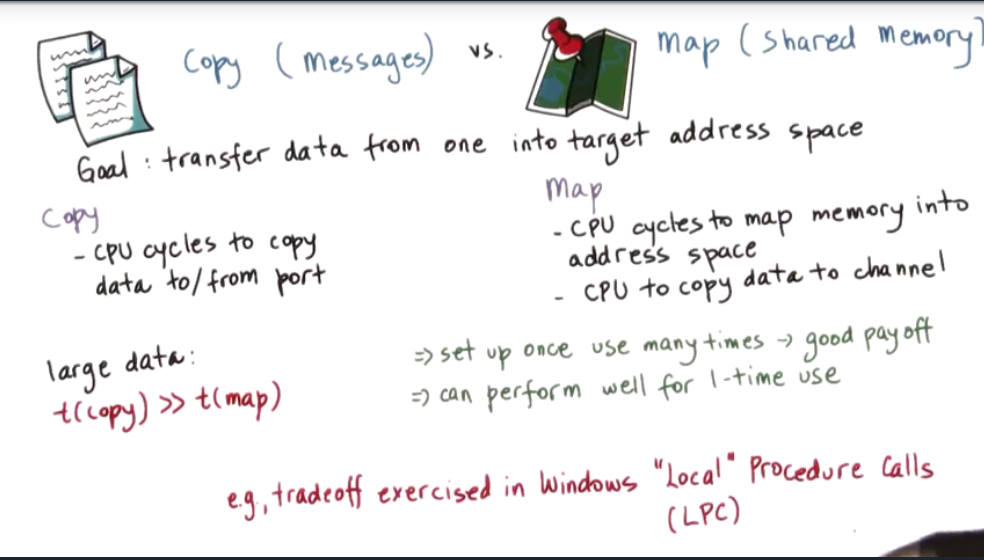 Copy (messages) vs. Map (shared memory)
Goal : transfer data from one into target address space
Copy
- CPU cycles to copy
data to/from port
Map
- CPU cycles to map memory into
address space
- CPU to copy data to channel
large data:
t(copy) >> t(map)
=> set up once use many times → good payoff
=> can perform well for 1-time use
e.g., tradeoff exercised in Windows "Local" Procedure Calls
(LPC)